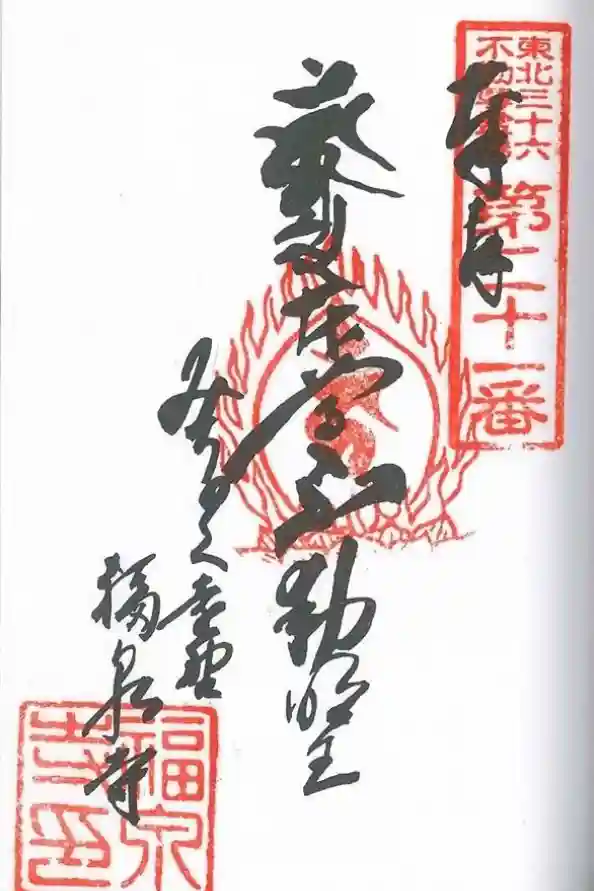 東北三十六
不動尊霊場
第二十一番
奉拝
不動明王
みちのく
福泉寺
福泉
寺印